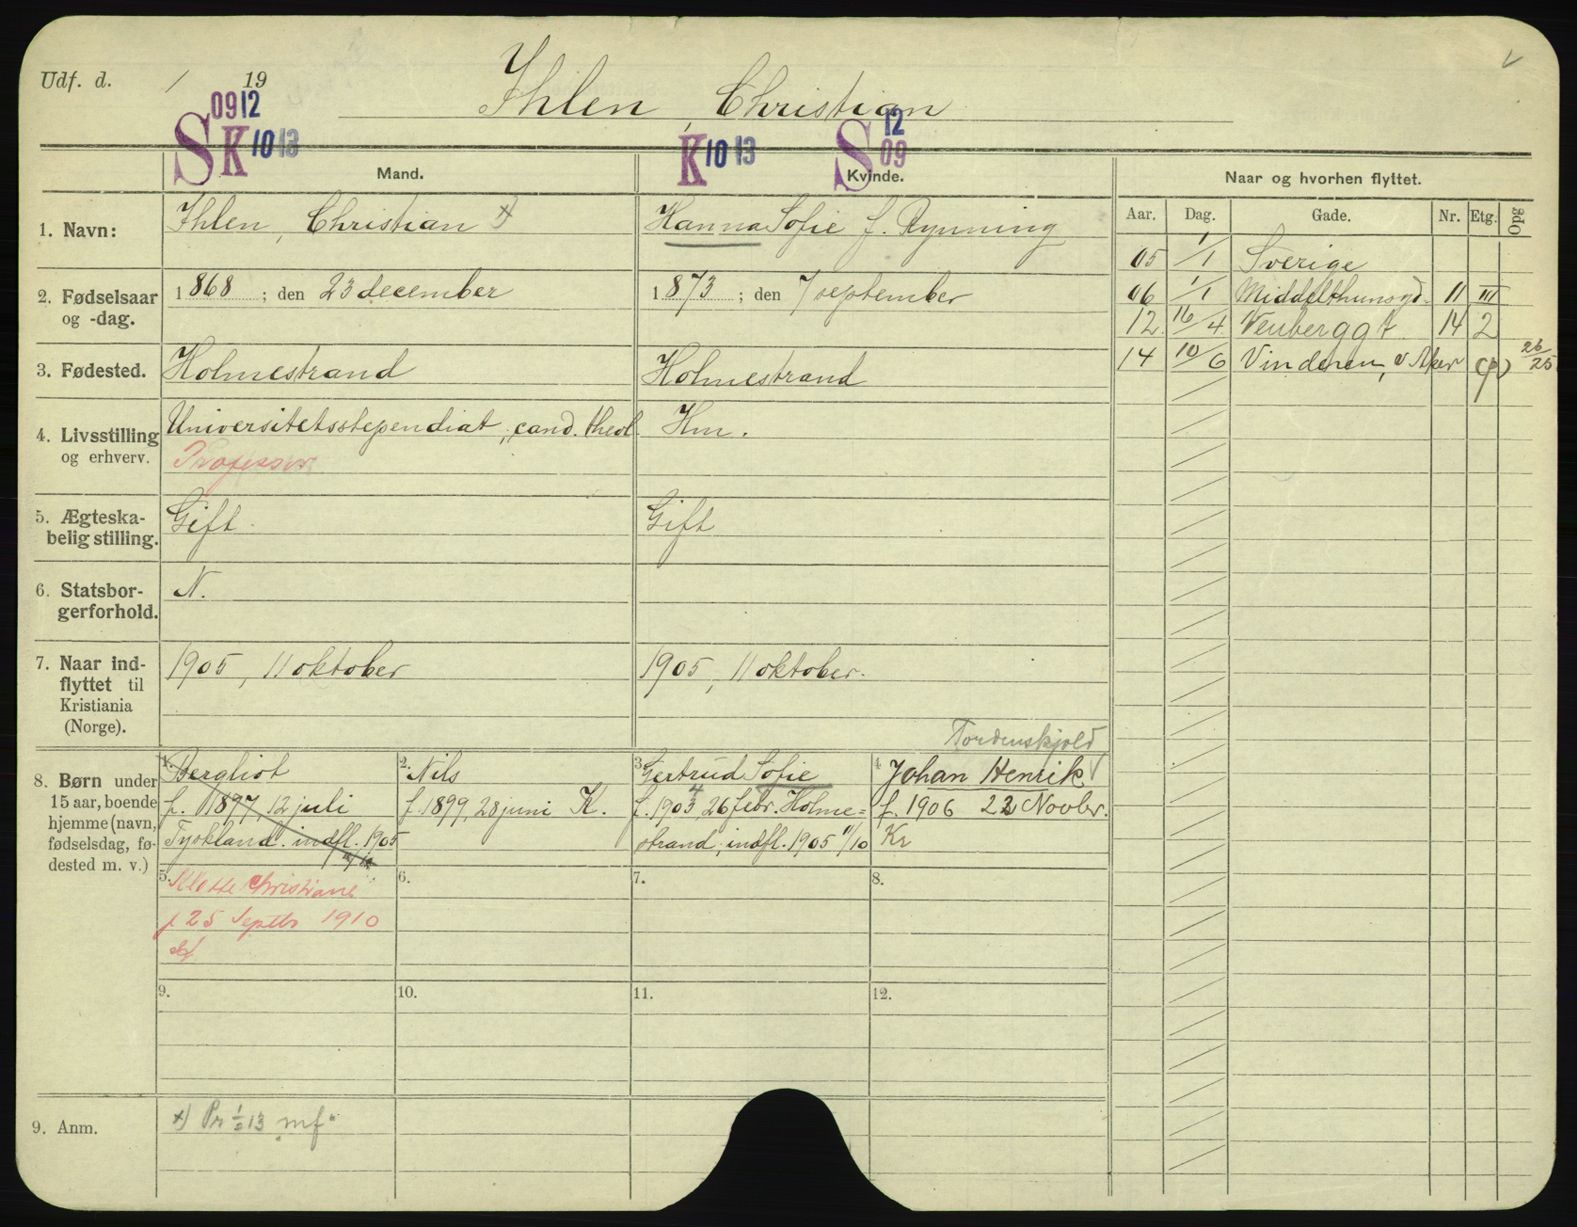 Udf. d. / 19
Ihlen, Christian
0912
SK 1013
K 1013
S 12
09
Mand.
Kvinde.
Naar og hvorhen flyttet.
Aar. Dag. Gade. Nr. Etg. Opg
1. Navn: Ihlen, Christian x)
Hanna Sofie f. Rynning
05 1/1 Sverige
2. Fødselsaar og -dag. 1868; den 23 december
1873; den 7 september
06 1/1 Middelthunsgd. 11 III
12 16/4 14 2
3. Fødested. Holmestrand
Holmestrand
14 10/6 Vinderen, v Aker 26/25
4. Livsstilling og erhverv. Universitetsstipendiat, cand. theol.
Professor
Hm.
5. Ægteska-
belig stilling. Gift.
Gift
6. Statsbor-
gerforhold. N.
7. Naar ind-
flyttet til
Kristiania
(Norge). 1905, 11 oktober
1905, 11 oktober.
Tordenskjold
8. Børn under
15 aar, boende
hjemme (navn,
fødselsdag, fø-
dested m. v.)
1. Bergliot
f. 1897 12 juli
Tyskland. indfl. 1905
2. Nils
f. 1899, 28 juni K.
3. Gertrud Sofie
f. 1903 4 26 febr. Holme=
strand, indfl. 1905 11/10
4 Johan Henrik
f. 1906 22 Novbr.
Kr
5. Christiane
f 25 Septbr 1910
6.
7.
8.
9.
10.
11.
12.
9. Anm. x) Pr 13 mf.